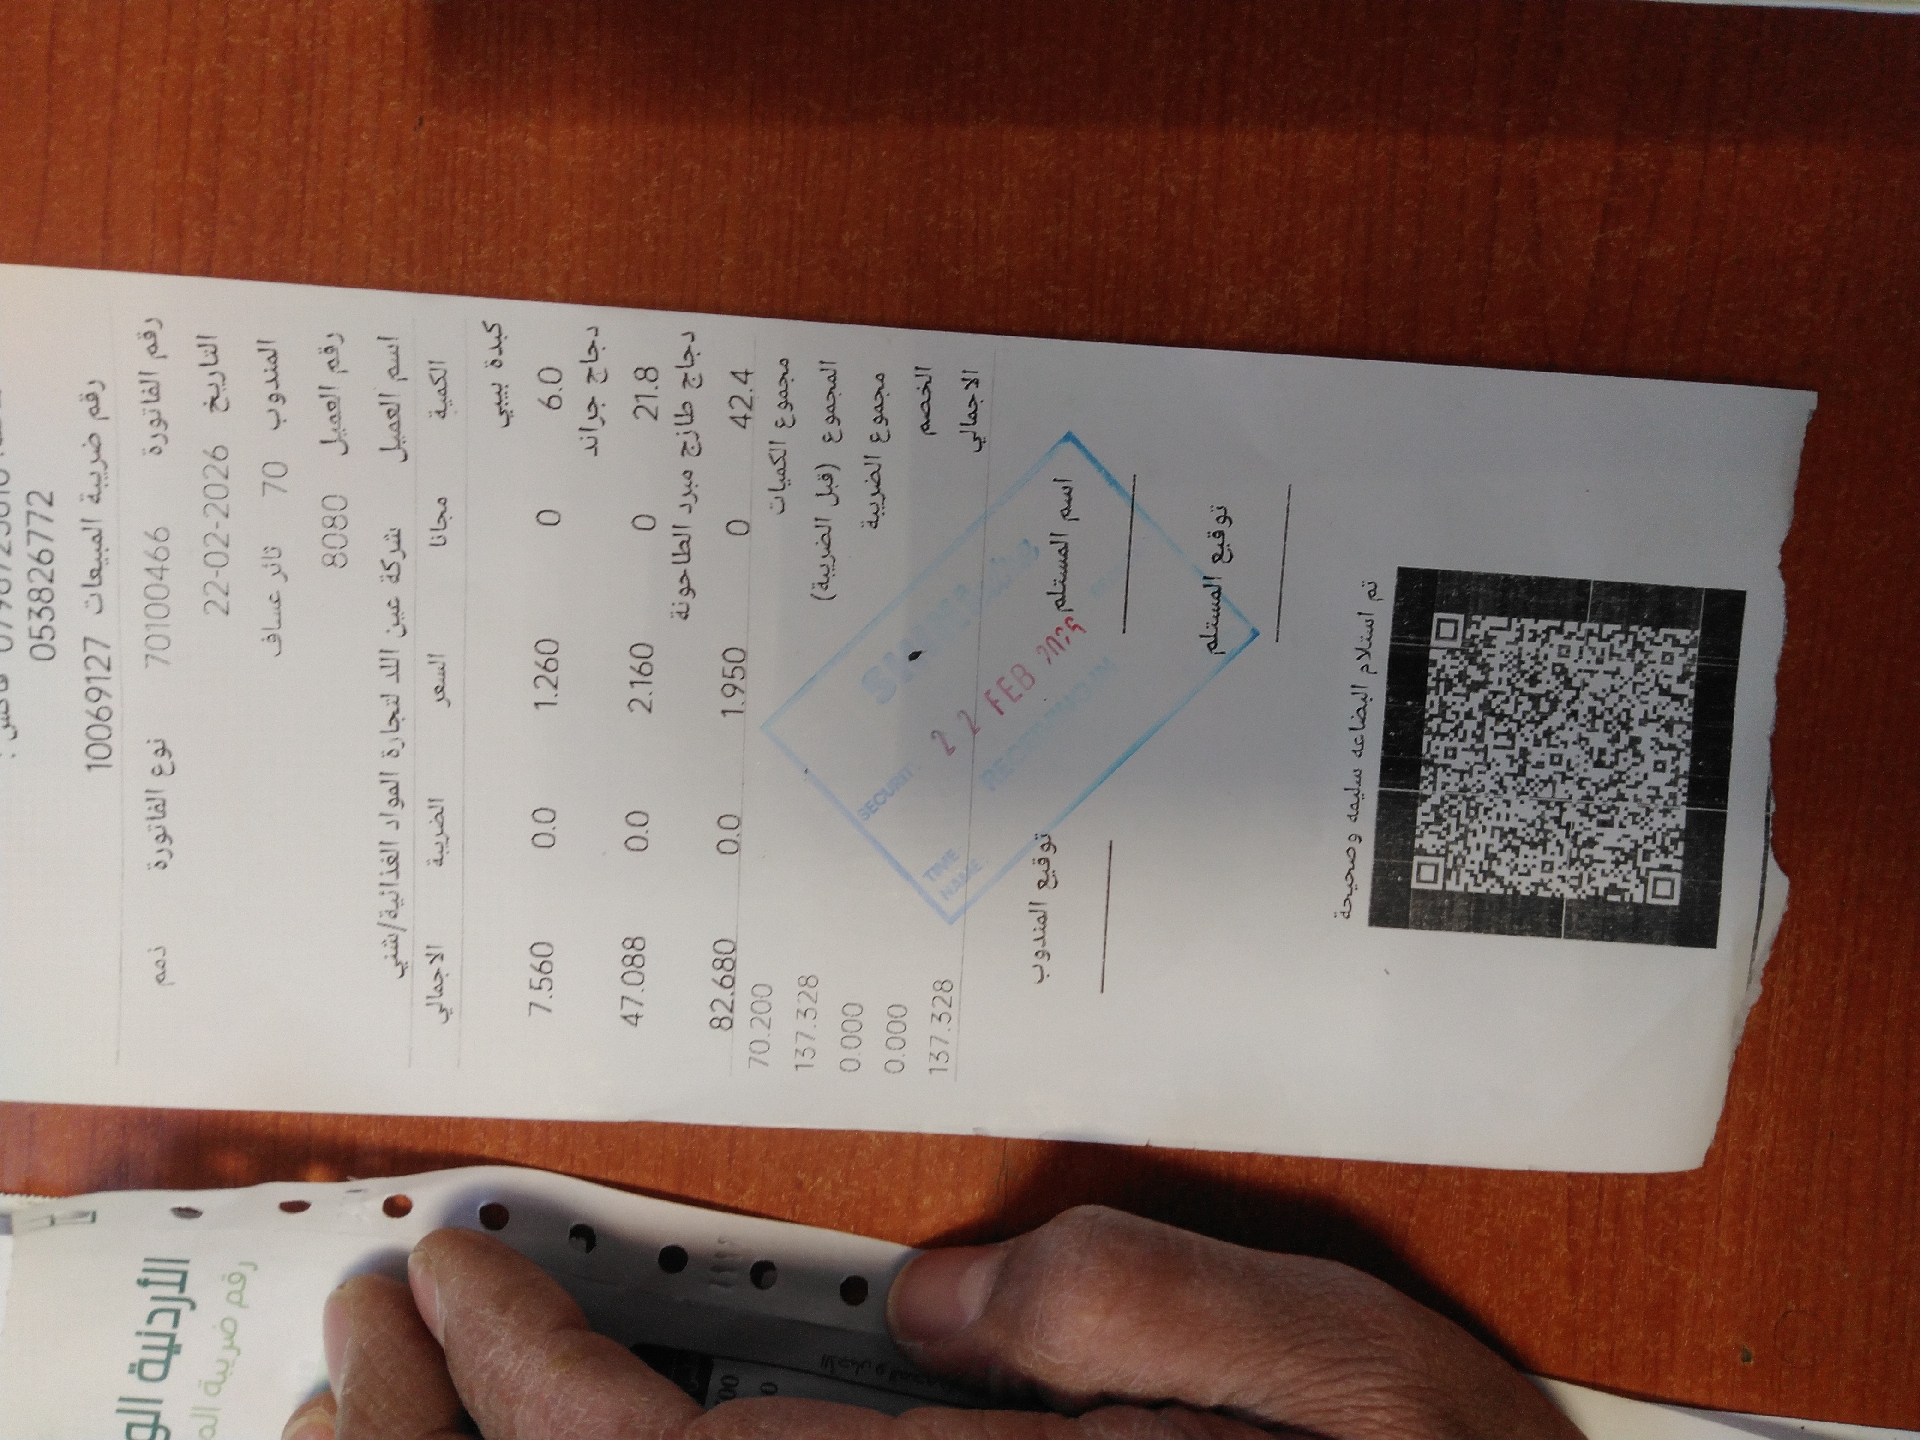 053826772
رقم ضريبة المبيعات 10069127
رقم الفاتورة 70100466 نوع الفاتورة ذمم
التاريخ 22-02-2026
المندوب 70 ثائر عساف
رقم العميل 8080
اسم العميل شركة عين اللد لتجارة المواد الغذائية/شني
الكمية مجانا السعر الضريبة الاجمالي
كبدة بيبي
6.0 0 1.260 0.0 7.560
دجاج جراند
21.8 0 2.160 0.0 47.088
دجاج طازج مبرد الطاحونة
42.4 0 1.950 0.0 82.680
مجموع الكميات 70.200
المجموع (قبل الضريبة) 137.328
مجموع الضريبة 0.000
الخصم 0.000
الاجمالي 137.328
22 FEB 2026
TIME
NAME
اسم المستلم توقيع المندوب
توقيع المستلم
تم استلام البضاعه سليمه وصحيحة
الأردنية
رقم ضريبة